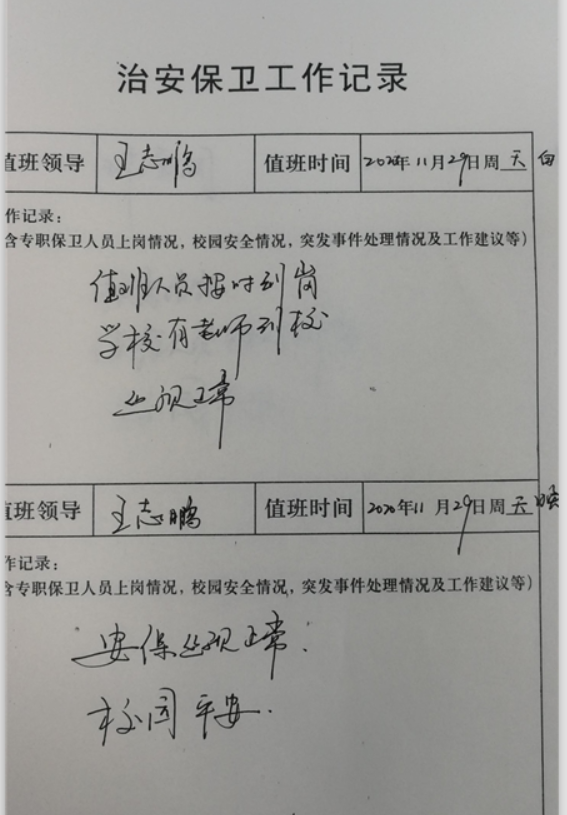 治安保卫工作记录
值班领导 王志鹏 值班时间 2020年11月29日周天 白
作记录：
含专职保卫人员上岗情况，校园安全情况，突发事件处理情况及工作建议等）
值班人员按时到岗
学校有老师到校
巡视正常
值班领导 王志鹏 值班时间 2020年11月29日周天
作记录：
含专职保卫人员上岗情况，校园安全情况，突发事件处理情况及工作建议等）
安保巡视正常．
校园平安．